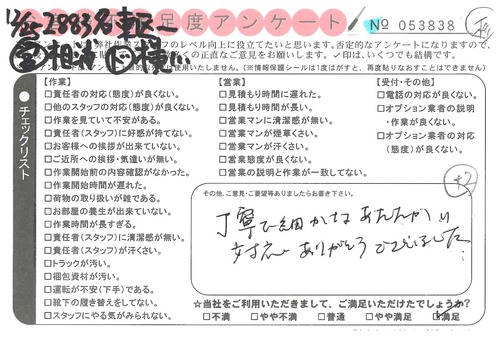 足度アンケート
№ 053838
弊社作業スタッフのレベル向上に役立てたいと思います。否定的なアンケートになりますので、
多くの正直なご意見をお願いします。✓印は、いくつでも結構です。
使用いたしません。(※情報保護シールは1度がすと、再度貼りなおすことはできません)
チェックリスト
【作業】
□責任者の対応(態度)が良くない。
□他のスタッフの対応(態度)が良くない。
□作業を見ていて不安がある。
□責任者(スタッフ)に好感が持てない。
□お客様への挨拶が出来ていない。
□ご近所への挨拶・気遣いが無い。
□作業開始前の内容確認がなかった。
□作業開始時間が遅れた。
□荷物の取り扱いが雑である。
□お部屋の養生が出来ていない。
□作業時間が長すぎる。
□責任者(スタッフ)に清潔感が無い。
□責任者(スタッフ)が汗くさい。
□トラックが汚い。
□梱包資材が汚い。
□運転が不安(下手)である。
□靴下の履き替えをしてない。
□スタッフにやる気がみられない。
【営業】
□見積もり時間に遅れた。
□見積もり時間が長い。
□営業マンに清潔感が無い。
□営業マンが煙草くさい。
□営業マンが汗くさい。
□営業態度が良くない。
□営業の説明と作業が一致してない。
【受付・その他】
□電話の対応が良くない。
□オプション業者の説明
・作業が良くない。
□オプション業者の対応
(態度)が良くない。
+2
その他、ご意見・ご要望等ありましたらお書き下さい。
丁寧で細かなあたたかい
対応ありがとうございました
☆当社をご利用いただきまして、ご満足いただけたでしょうか?
□不満 □やや不満 □普通 □やや満足 ☑満足